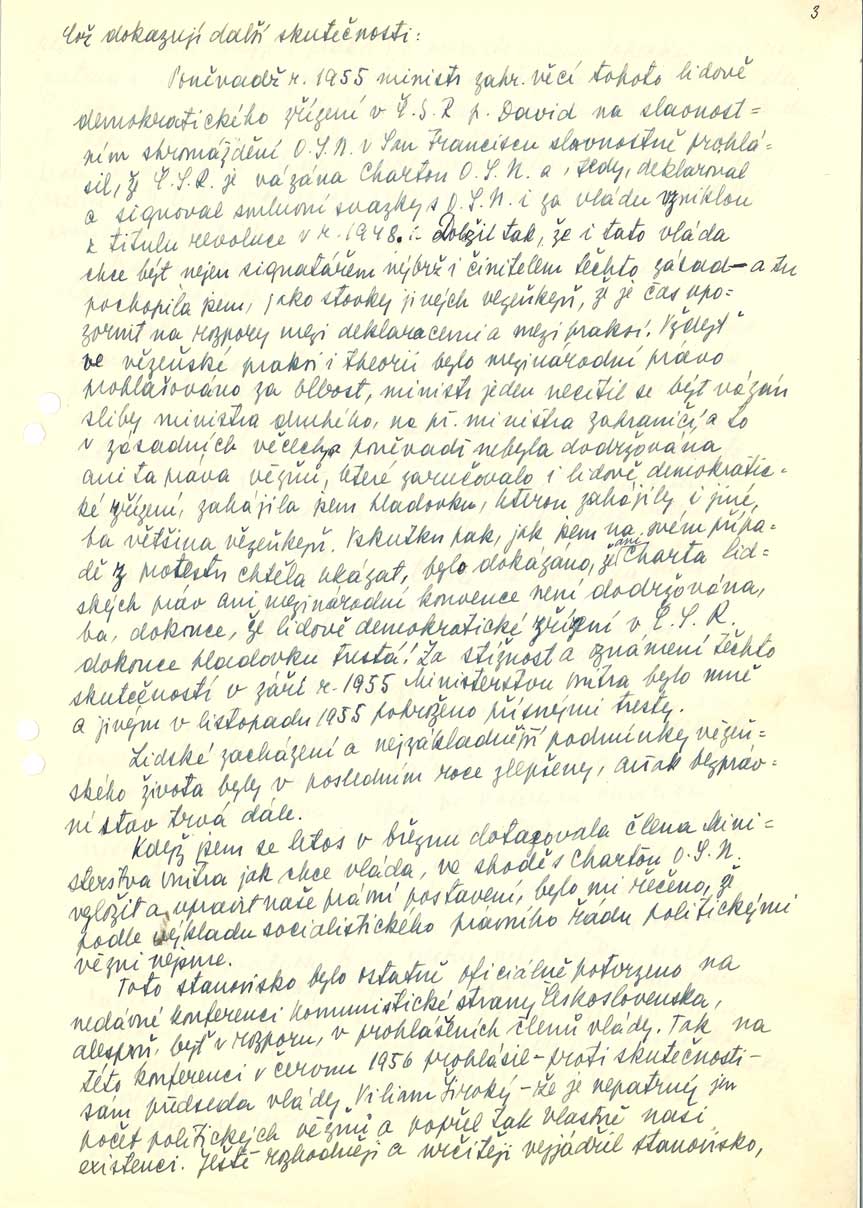 3
Což dokazují další skutečnosti:
Poněvadž r. 1955 ministr zahr. věcí tohoto lidově
demokratického zřízení v Č.S.R p. David na slavnost=
ním shromáždění O.S.N. v San Franciscu slavnostně prohlá=
sil, že Č.S.R. je vázána Chartou O.S.N. a, tedy, deklaroval
a signoval smluvní svazky s O.S.N. i za vládu vzniklou
z titulu revoluce v r. 1948. :- Doložil tak, že i tato vláda
chce být nejen signatářem nýbrž i činitelem těchto zásad - a tu
pochopila jsem, jako stovky jiných vezeňkyň, že je čas upo=
zornit na rozpory mezi deklaracemi a mezi praksí. Vždyť
ve vězeňské praksi i theorii bylo mezinárodní právo
prohlašováno za blbost, ministr jeden necítil se být vázán
sliby ministra druhého, na př. ministra zahraničí, a to
v zásadních věcech, a poněvadž nebyla dodržována
ani ta práva vězňů, které zaručovalo i lidově demokratic=
ké zřízení, zahájila jsem hladovku, kterou zahájily i jiné,
ba většina vězeňkyň. Vskutku pak, jak jsem na svém přípa=
dě z protestu chtěla ukázat, bylo dokázáno, že ani Charta lid=
ských práv ani mezinárodní konvence není dodržována,
ba, dokonce, že lidově demokratické zřízení v Č.S.R.
dokonce hladovku trestá! Za stížnost a oznámení těchto
skutečností v září r. 1955 Ministerstvu vnitra bylo mně
a jiným v listopadu 1955 pohroženo přísnými tresty.
Lidské zacházení a nejzákladnější podmínky vězeň=
ského života byly v posledním roce zlepšeny, avšak bezpráv=
ní stav trvá dále.
Když jsem se letos v březnu dotazovala člena Mini=
sterstva vnitra jak chce vláda, ve shodě s Chartou O.S.N.
vyložit a upravit naše právní postavení, bylo mi řečeno, že
podle výkladu socialistického právního řádu politickými
vězni nejsme.
Toto stanovisko bylo ostatně oficiálně potvrzeno na
nedávné konferenci Komunistické strany Československa,
alespoň, byť v rozporu, v prohlášeních členů vlády. Tak na
této konferenci v červnu 1956 prohlásil - proti skutečnosti -
sám předseda vlády Viliam Široký - že je nepatrný jen
počet politických vězňů a popřel tak vlastně naši
existenci. Ještě rozhodněji a určitěji vyjádřil stanovisko,